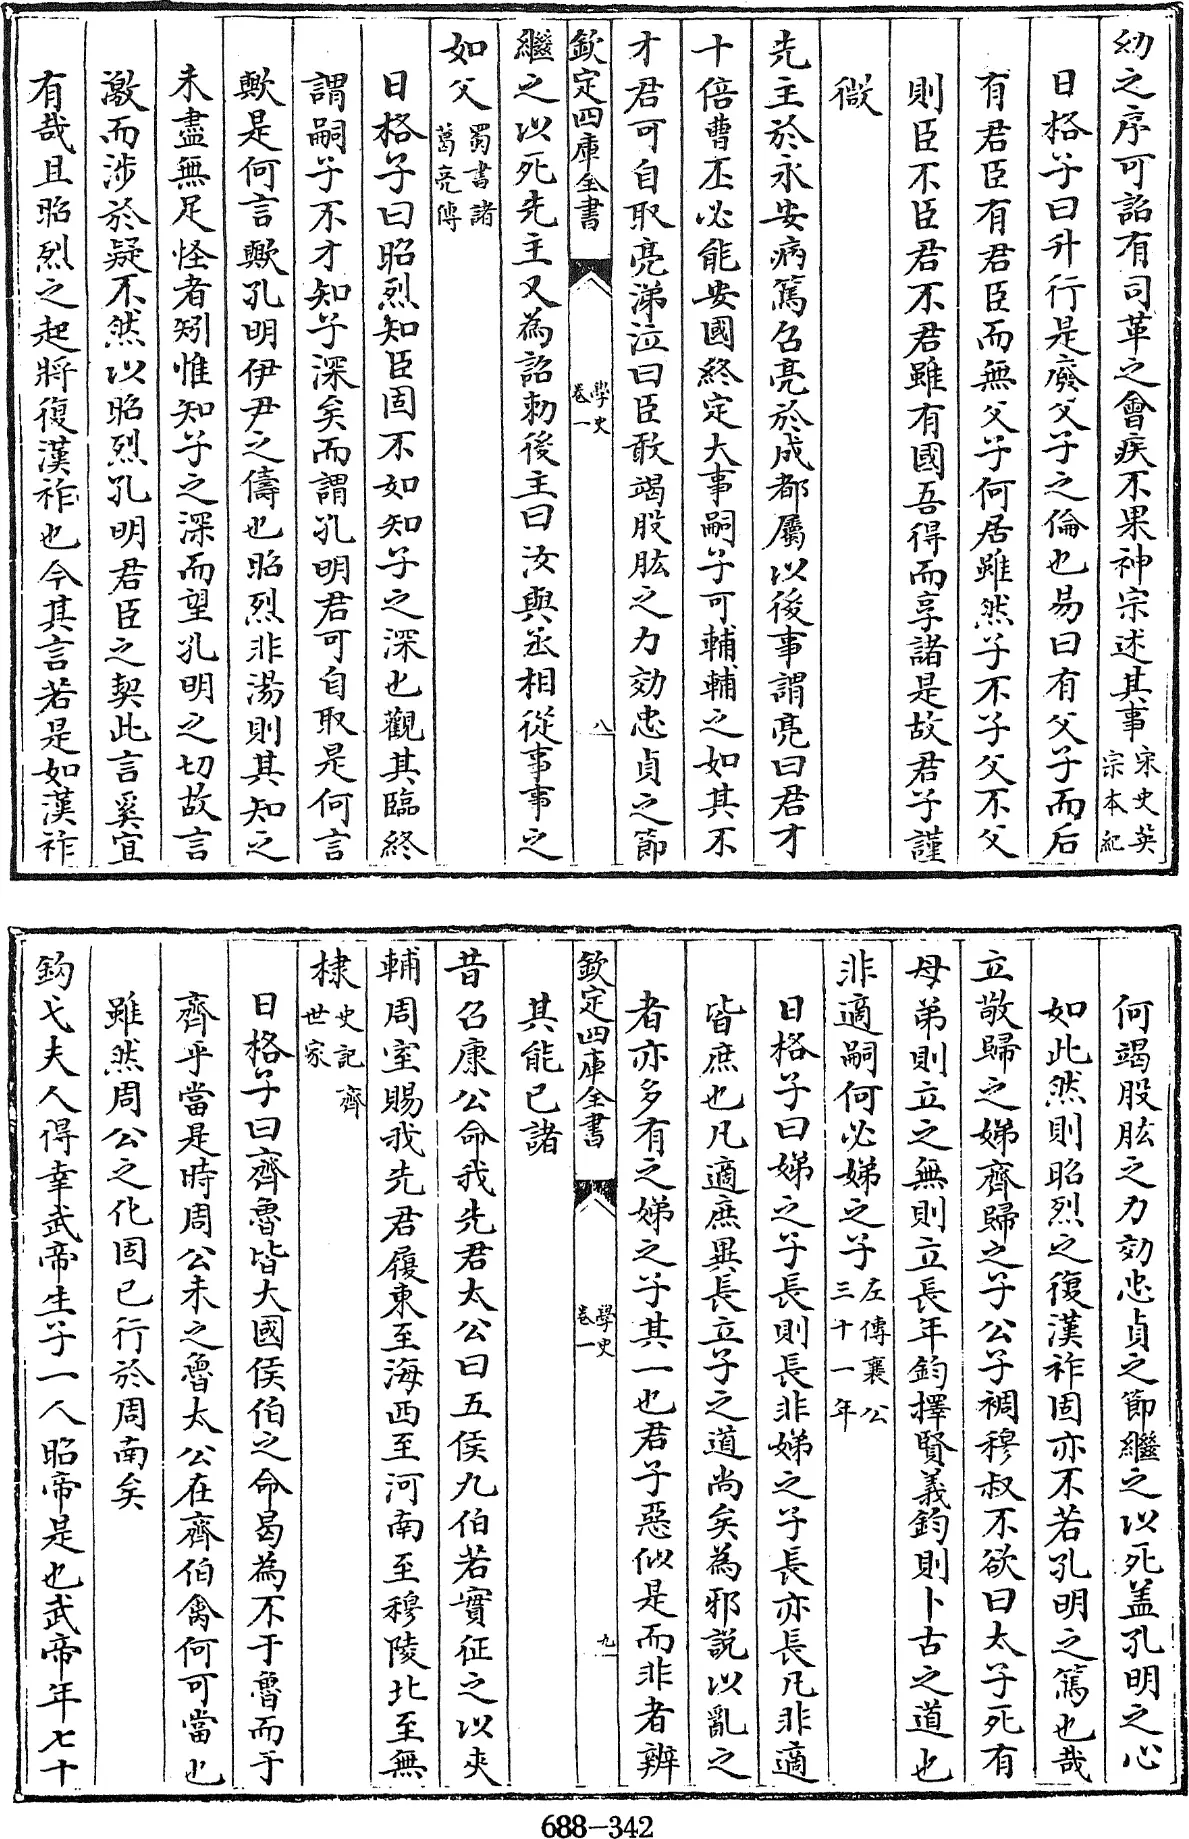 紗之序可詔有司革之會疾不果神宗述其事宋史英宗本紀
日格子曰升行是廢父子之倫也易曰有父子而后
有君臣有君臣而無父子何居雖然子不子父不父
則臣不臣君不君雖有國吾得而享諸是故君子謹
微
先主於永安病篤召亮於成都屬以後事謂亮曰君才
十倍曹丕必能安國終定大事嗣子可輔輔之如其不
才君可自取亮涕泣曰臣敢竭股肱之力効忠貞之節
欽定四庫全書
學史
卷一
八
繼之以死先主又為詔勑後主曰汝與丞相從事事之
如父蜀書諸葛亮傳
日格子曰昭烈知臣固不如知子之深也觀其臨終
謂嗣子不才知子深矣而謂孔明君可自取是何言
歟是何言歟孔明伊尹之儔也昭烈非湯則其知之
未盡無足怪者矧惟知子之深而望孔明之切故言
激而涉於疑不然以昭烈孔明君臣之契此言奚宜
有哉且昭烈之起將復漢祚也今其言若是如漢祚
何竭股肱之力効忠貞之節繼之以死盖孔明之心
如此然則昭烈之復漢祚固亦不若孔明之篤也哉
立敬歸之娣齊歸之子公子裯穆叔不欲曰太子死有
母弟則立之無則立長年鈞擇賢義鈞則卜古之道也
非適嗣何必娣之子左傳襄公三十一年
日格子曰娣之子長則長非娣之子長亦長凡非適
皆庶也凡適庶異長立子之道尚矣為邪說以亂之
者亦多有之娣之子其一也君子惡似是而非者辨
欽定四庫全書
學史
卷一
九
其能已諸
昔召康公命我先君太公曰五侯九伯若實征之以夾
輔周室賜我先君履東至海西至河南至穆陵北至無
棣史記齊世家
日格子曰齊魯皆大國侯伯之命曷為不于魯而于
齊乎當是時周公未之魯太公在齊伯禽何可當也
雖然周公之化固已行於周南矣
鈎弋夫人得幸武帝生子一人昭帝是也武帝年七十
688-342